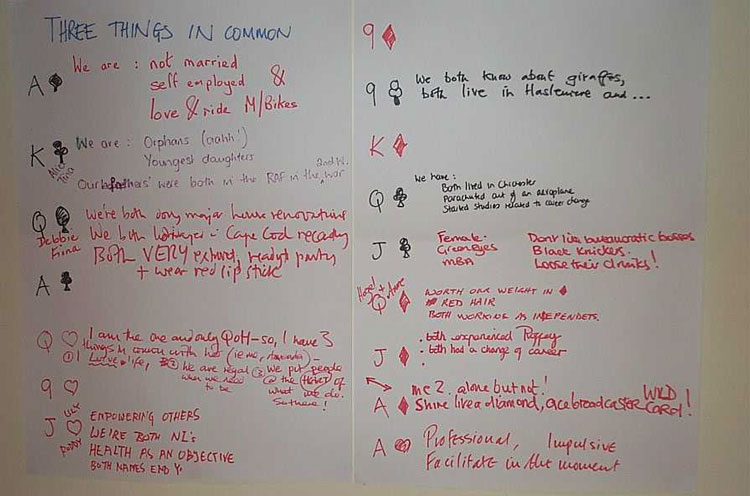 THREE THINGS IN COMMON
A We are : not married
self employed &
love & ride M/Bikes
K We are : Orphans (aahh!)
Youngest daughters
Our fathers' were both in the RAF in the 2nd W. war
Q We're both doing major house renovations
Debbie We both Cape Cod recently
Fiona BOTH VERY extravert, ready to party
+ wear red lipstick
A
Q I am the one and only QoH - so, I have 3
things in common with her (ie me, ) -
① I love life, ② We are regal ③ We put people
when we need @ the (HEART) of
to be what we do.
So there!
9
LILY
J EMPOWERING OTHERS
PODDY WE'RE BOTH NI's
HEALTH AS AN OBJECTIVE
BOTH NAMES END Y.
9
9 We both know about giraffes,
both live in Haslemere and ...
K
We have :
Q Both lived in Chichester
Parachuted out of an aeroplane
Started Studies related to career change
J Female. Don't like bureaucratic bosses
Green eyes Black Knickers.
MBA Loose their drinks!
Hazel +
Q WORTH OUR WEIGHT IN
RED HAIR
BOTH WORKING AS INDEPENDETS.
J . both experienced
. both had a change of career
.
me 2. alone but not! WILD
A Shine like a diamond, ace broadcaster CAROL!
A Professional, Impulsive
Facilitate in the moment